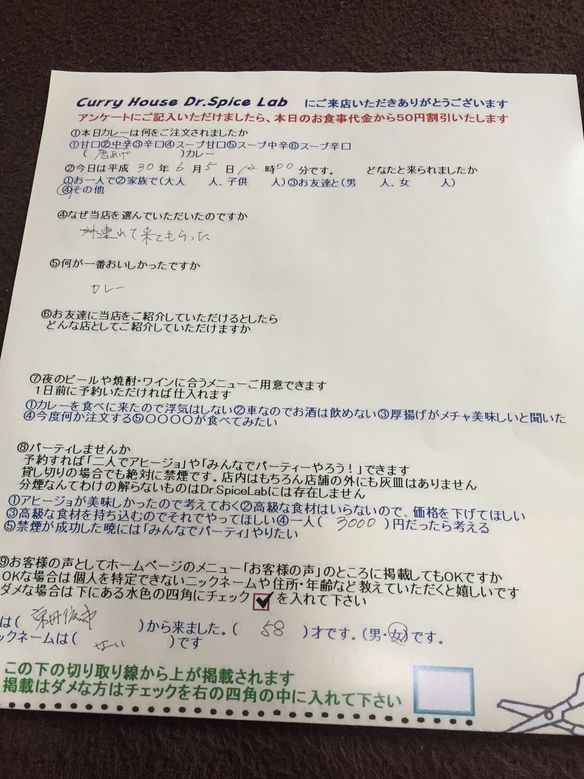 Curry House Dr.Spice Lab にご来店いただきありがとうございます
アンケートにご記入いただけましたら、本日のお食事代金から50円割引いたします
①本日カレーは何をご注文されましたか
①甘口②中辛③辛口④スープ甘口⑤スープ中辛⑥スープ辛口
(唐あげ)カレー
②今日は平成30年6月5日12時00分です。 どなたと来られましたか
①お一人で②家族で(大人 人、子供 人)③お友達と(男 人、女 人)
④その他
④なぜ当店を選んでいただいたのですか
連れて来てもらった
⑤何が一番おいしかったですか
カレー
⑥お友達に当店をご紹介していただけるとしたら
どんな店としてご紹介していただけますか
⑦夜のビールや焼酎・ワインに合うメニューご用意できます
1日前に予約いただければ仕入れます
①カレーを食べに来たので浮気はしない②車なのでお酒は飲めない③厚揚げがメチャ美味しいと聞いた
④今度何か注文する⑤○○○○が食べてみたい
⑧パーティしませんか
予約すれば「二人でアヒージョ」や「みんなでパーティーやろう!」できます
貸し切りの場合でも絶対に禁煙です。店内はもちろん店舗の外にも灰皿はありません
分煙なんてわけの解らないものはDr.SpiceLabには存在しません
①アヒージョが美味しかったので考えておく②高級な食材はいらないので、価格を下げてほしい
③高級な食材を持ち込むのでそれでやってほしい④一人(3000)円だったら考える
⑤禁煙が成功した暁には「みんなでパーティ」やりたい
⑨お客様の声としてホームページのメニュー「お客様の声」のところに掲載してもOKですか
OKな場合は個人を特定できないニックネームや住所・年齢など教えていただくと嬉しいです
ダメな場合は下にある水色の四角にチェック☑を入れて下さい
は()から来ました。(58)才です。(男・女)です。
ックネームは()です
この下の切り取り線から上が掲載されます
掲載はダメな方はチェックを右の四角の中に入れて下さい